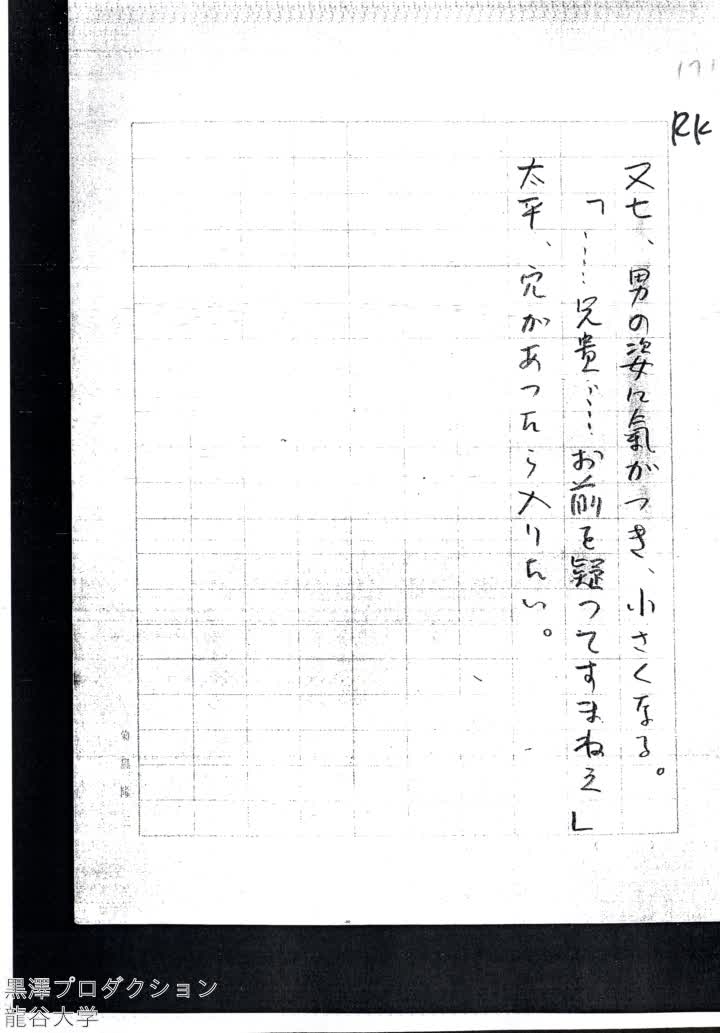 RK
又七、男の姿に氣がつき、小さくなる。
「……兄貴……お前を疑つてすまねえ」
太平、穴があつたら入りたい。
黒澤プロダクション
龍谷大学